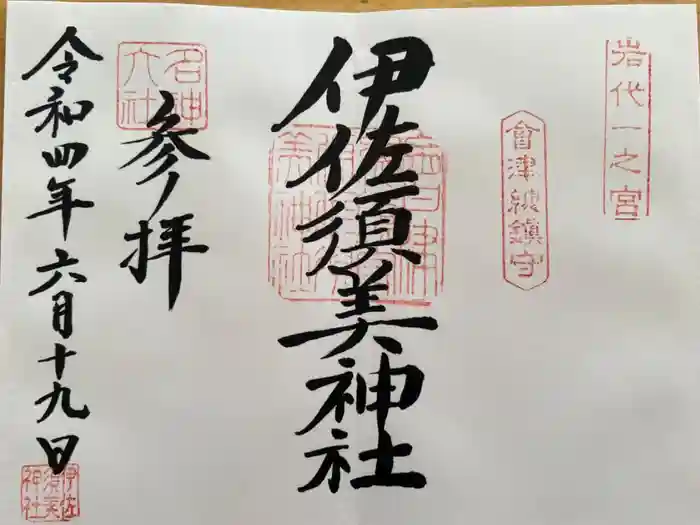 岩代一之宮
會津総鎮守
伊佐須美神社
参拝
名神大社
令和四年六月十九日
伊佐須美神社